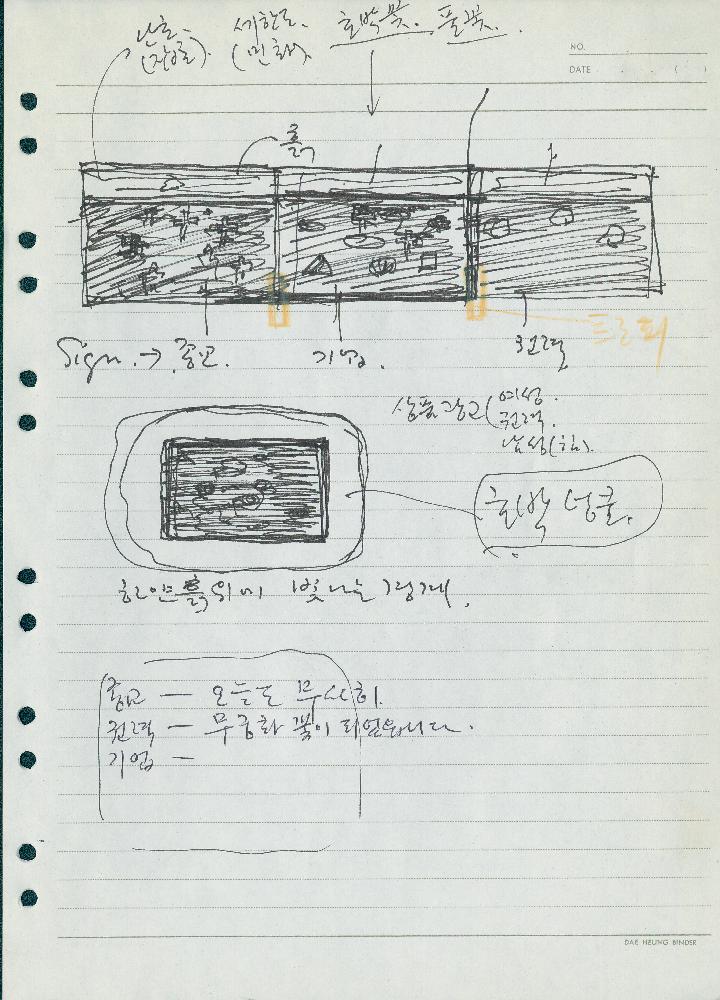 난초. 세한도. 호박꽃. 풀꽃.
(장승). (민화).
NO.
DATE . . ( )
흙
트로피
Sign. → 종교. 기업. 권력
상품광고 ( 여성.
권력.
남성(힘).
호박 넝쿨.
하얀 흙 위에 빛나는 경계.
종교 — 오늘도 무사히.
권력 — 무궁화 꽃이 피었습니다.
기업 —
DAE HEUNG BINDER